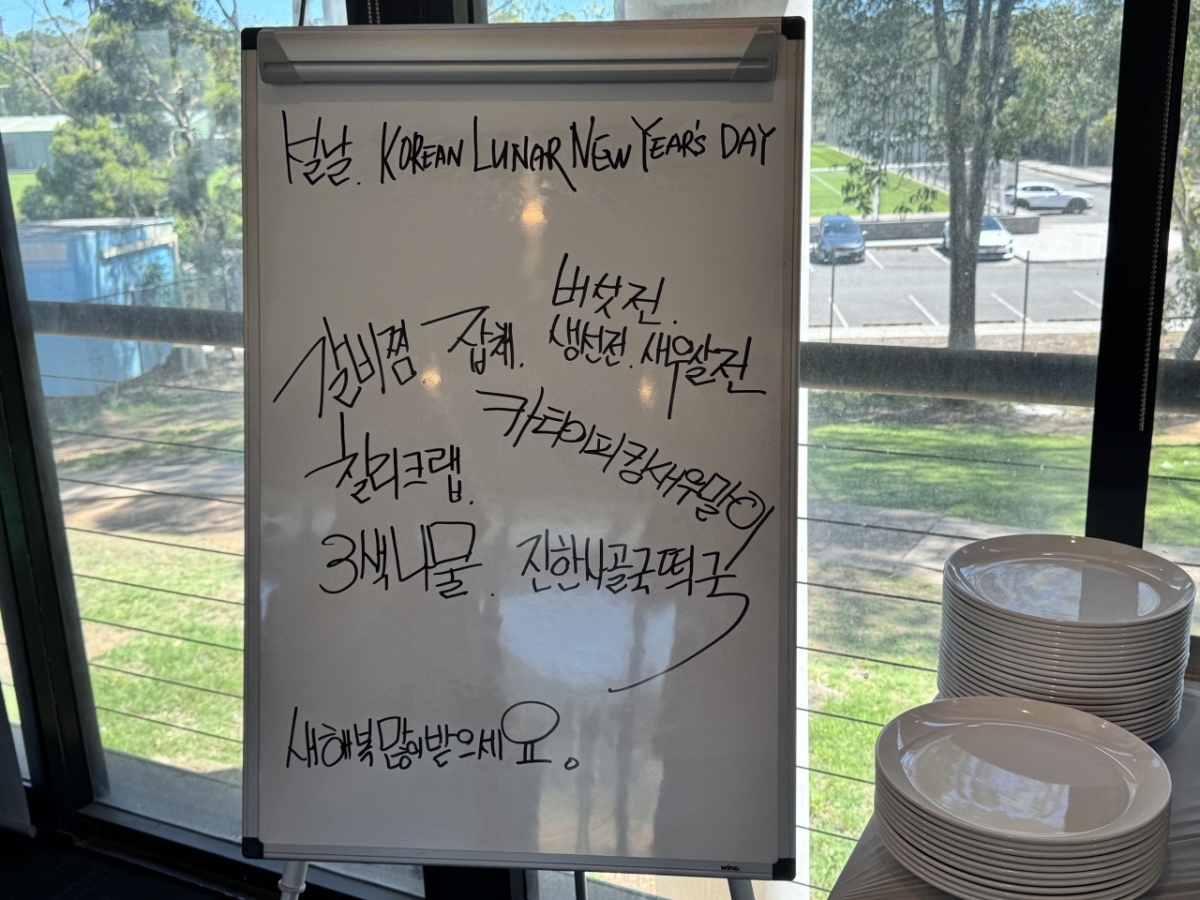 설날. KOREAN LUNAR NEW YEAR'S DAY
버섯전.
갈비찜 잡채. 생선전. 새우살전
카타이피킹새우말이
칠리크랩.
3색나물. 진한사골국떡국
새해복많이받으세요.
winc.